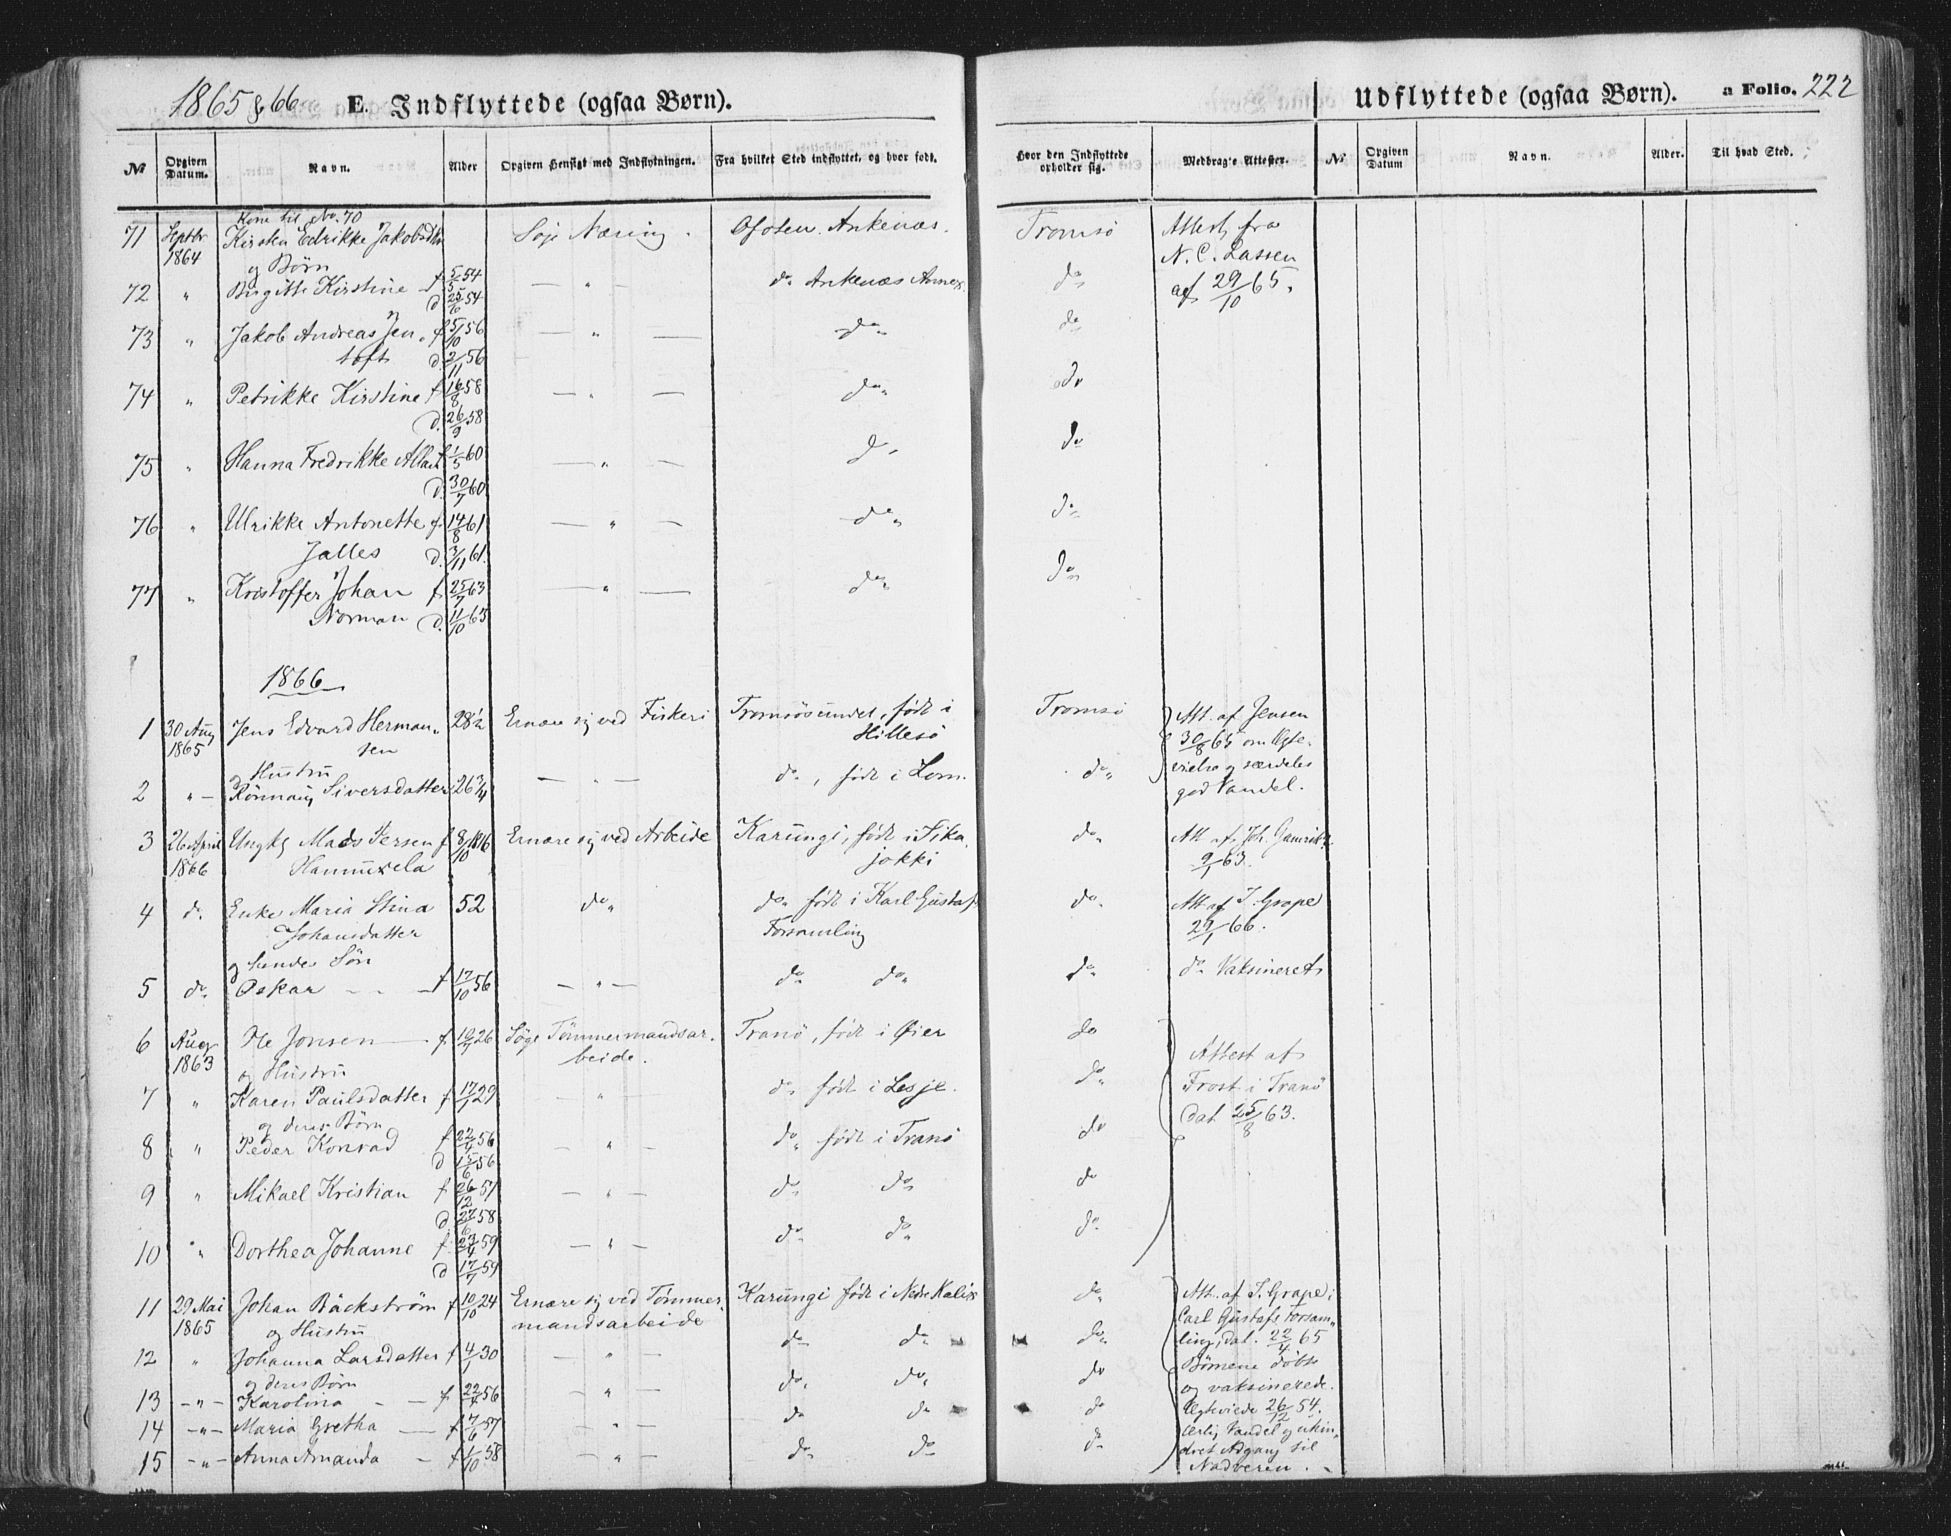 1865 & 66 E. Indflyttede (ogsaa Børn). Udflyttede (ogsaa Børn). a Folio. 222
No Opgiven Datum. Navn. Alder Opgiven Hensigt med Indflytningen. Fra hvilket Sted indflyttet, og hvor født. Hvor den Indflyttede opholder sig. Medbragte Attester. No Opgiven Datum Navn. Alder. Til hvad Sted.
Kone til No. 70
71 Septbr 1864 Kirsten Edrikke Jakobsdtr Søge Næring. Ofoten. Ankenæs. Tromsö Attest fra
og Børn N. C. Lassen
72 " Birgitte Kirstine f 5/5 54 — " — do Ankenæs Annex. do af 29/10 65.
d 25/6 54
73 " Jakob Andreas Jen- f 5/10 56 — " — do do
toft d 2/11 56
74 " Petrikke Kirstine f 16/8 58 — " — do do
d. 26/9 58
75 " Hanna Fredrikke f 1/5 60 — " — do do
d. 30/7 60
76 " Ulrikke Antonette f. 14/8 61 — " — do do
Jalles d. 3/11 61.
77 " Kristoffer Johan f. 25/7 63 — " — do do
Norman d. 11/10 63
1866
1 30 Aug 1865 Jens Edvard Herman- 28 1/2 Ernære sig ved Fiskeri Tromsösundet, født i Tromsö Att. af Jensen
sen Hillesö 30/8 65 om Ægte-
og Hustru vielse og særdeles
2 " — Rönnaug Siversdatter 26 3/4 — " — do, født i Lom. do god Vandel.
3 26 April 1866 Ungk Mads Persen f 8/10 1816 Ernære sig ved Arbeide Karungi, født i Sika- do Att. af Joh.
Hannuxela jokki 9/1 63.
4 do Enke Maria Stina 52 do do født i Karl Gustafs do Att af I. Grape
Johansdatter Forsamling 29/1 66.
og hendes Søn
5 do Oskar — f 17/10 56 — " — do do do do Vaksineret
6 Aug 1863 Ole Jonsen — f. 10/4 26 Søge Tømmermandsar- Tranö, født i Øier do Attest af
og Hustru beide.
7 " Karen Paulsdatter f 17/1 29 — " — do født i Lesje. do Frost i Tranö
og deres Børn dat 25/8 63.
8 " Peder Konrad f 22/4 56 — " — do født i Tranö do
d 15/6 56
9 " Mikael Kristian f 26/12 57 — " — do do do
d 27/6 58
10 " Dorthea Johanne f. 23/4 59 — " — do do do
d 17/7 59
11 29 Mai 1865 Johan Bäckström f 10/10 24 Ernære sig ved Tømmer- Karungi født i Nedre Kalix do Att. af I. Grape i
og Hustru mandsarbeide Carl Gustafs Forsam-
12 " Johanna Larsdatter f 4/1 30 — " — do do do ling, dat. 22/4 65
og deres Børn Børnene døbte
13 — " — Karolina — f. 22/4 56 — " — do do do og vaksinerede.
14 — " — Maria Gretha — f 7/6 57 — " — do do do Ægteviede 26/12 54.
15 — " — Anna Amanda — f 1/10 58 — " — do do do Ærlig Vandel og uhin-
dret Adgang til
Nadveren.